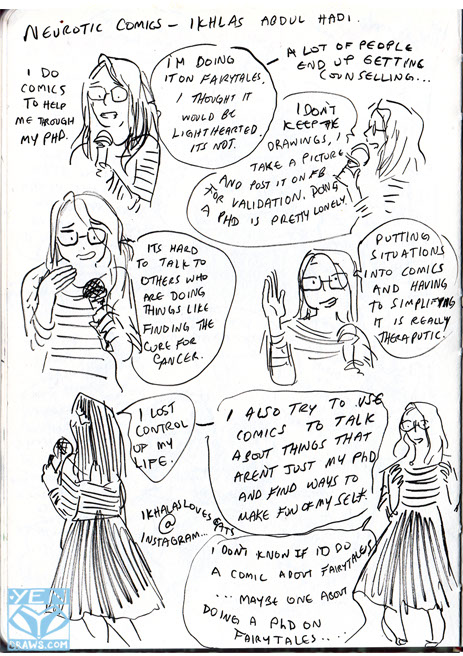 NEUROTIC COMICS – IKHLAS ABDUL HADI.
I DO
COMICS
TO HELP
ME THROUGH
MY PHD.
I'M DOING
IT ON FAIRYTALES.
I THOUGHT IT
WOULD BE
LIGHTHEARTED.
ITS NOT.
A LOT OF PEOPLE
END UP GETTING
COUNSELLING...
I DON'T
KEEP THE
DRAWINGS, I
TAKE A PICTURE
AND POST IT ON FB
FOR VALIDATION. DOING
A PHD IS PRETTY LONELY.
ITS HARD
TO TALK TO
OTHERS WHO
ARE DOING
THINGS LIKE
FINDING THE
CURE FOR
CANCER.
PUTTING
SITUATIONS
INTO COMICS
AND HAVING
TO SIMPLIFYING
IT IS REALLY
THERAPUTIC.
I LOST
CONTROL
UP MY
LIFE.
I ALSO TRY TO USE
COMICS TO TALK
ABOUT THINGS THAT
ARENT JUST MY PHD
AND FIND WAYS TO
MAKE FUN OF MY SELF.
IKHALASLOVESCATS
@
INSTAGRAM...
I DON'T KNOW IF I'D DO
A COMIC ABOUT FAIRYTALES
... MAYBE ONE ABOUT
DOING A PHD ON
FAIRYTALES....
YEN
DRAWS.COM